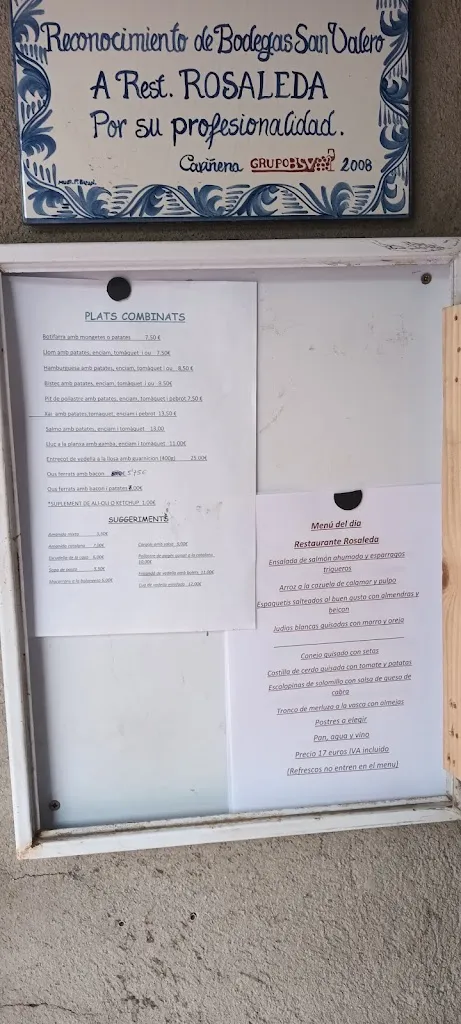 Reconocimiento de Bodegas San Valero
A Rest. ROSALEDA
Por su profesionalidad.
Cariñena GRUPO BSV 2008
PLATS COMBINATS
Botifarra amb mongetes o patates 7,50 €
Llom amb patates, enciam, tomàquet i ou 7,50€
Hamburguesa amb patates, enciam, tomàquet i ou 8,50€
Bistec amb patates, enciam, tomàquet i ou 8,50€
Pit de pollastre amb patates, enciam i pebrot 7,50 €
Xai amb patates, tomàquet, enciam i pebrot 13,50 €
Salmo amb patates, enciam i tomàquet 13,00
Lluç a la planxa amb gamba, enciam i tomàquet 11,00€
Entrecot de vedella a la llosa amb guarnicion (400g) 25,00€
Ous ferrats amb bacon
Ous ferrats amb bacon i patates
*SUPLEMENT DE ALI-OLI O KETCHUP 1,00€
SUGGERIMENTS
Menú del día
Restaurante Rosaleda
Ensalada de salmón ahumada y esparragos
trigueros
Arroz a la cazuela de calamar y pulpo
Espaguetis salteados al buen gusto con almendras y
beicon
Judías blancas guisadas con morro y oreja
Conejo guisado con setas
Costilla de cerdo guisada con tomate y patatas
Escalopinas de solomillo con salsa de queso de
cabra
Tronco de merluza a la vasca con almejas
Postres a elegir
Pan, agua y vino
Precio 17 euros IVA incluido
(Refrescos no entren en el menu)